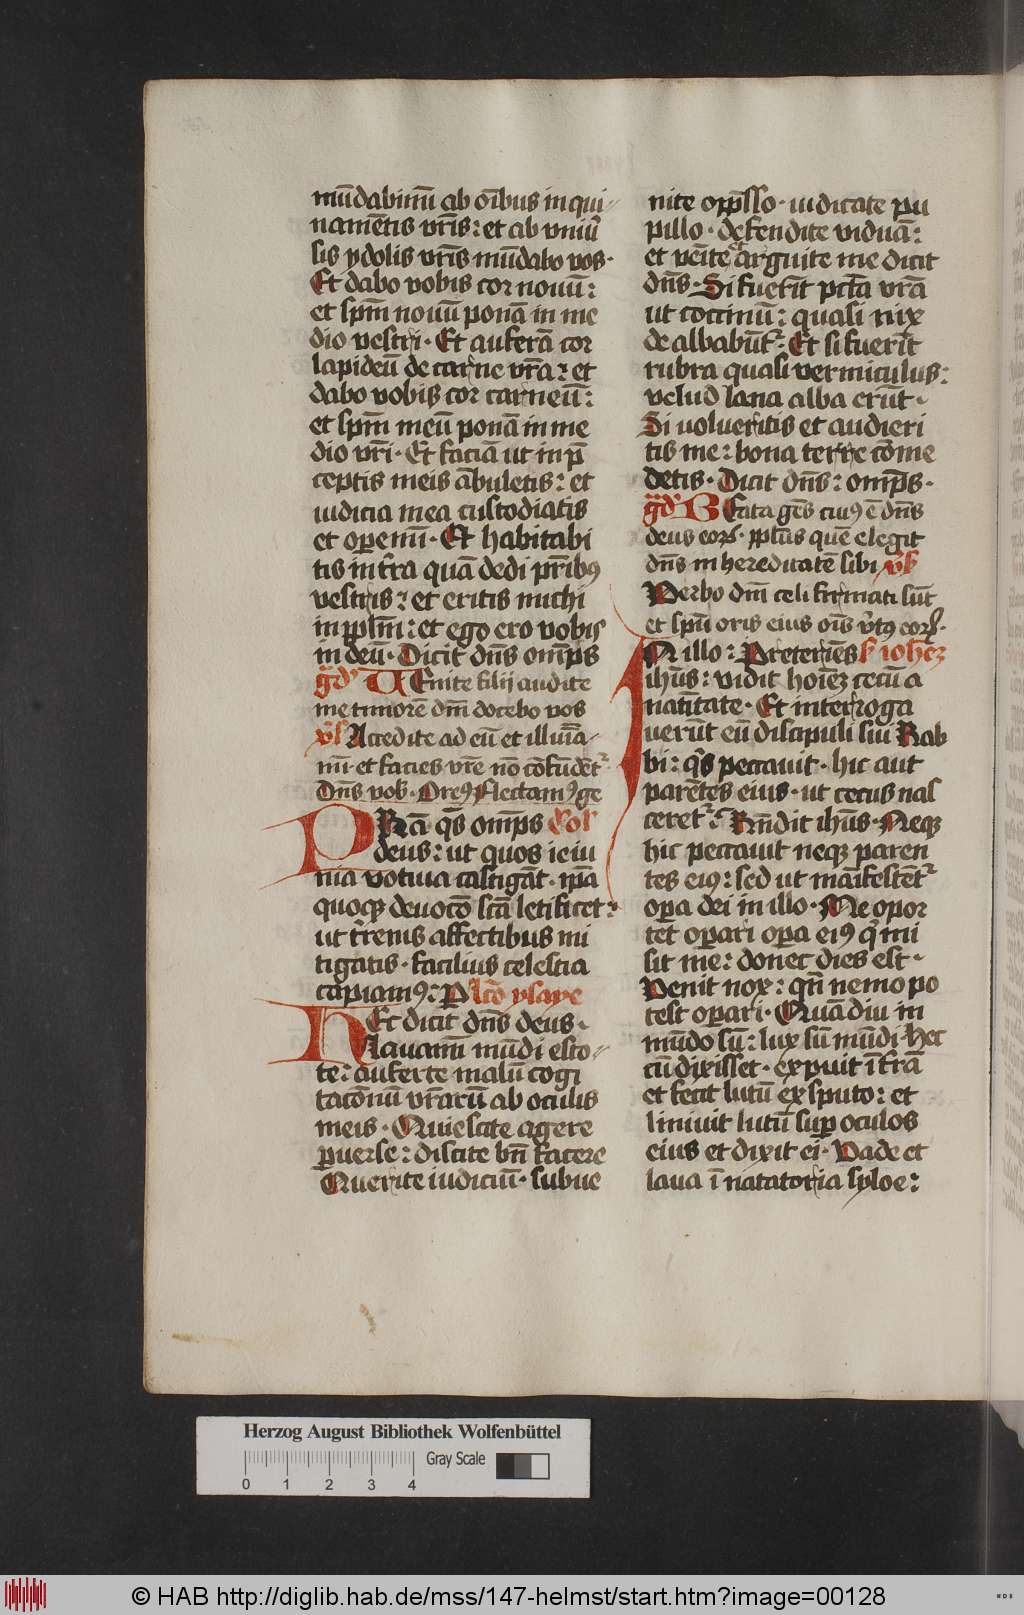 mūdabimī ab oībus inqui
namētis vr̄is: et ab vniū
sis ydolis vr̄is mūdabo vos·
Et dabo vobis cor nouū:
et spm̄ nouū ponā in me
dio vestri· Et auferā cor
lapideū de carne vr̄a: et
dabo vobis cor carneū:
et spm̄ meū ponā in me
dio vr̄i· Et faciā ut in p̄
ceptis meis ābuletis: et
iudicia mea custodiatis
et operemī· Et habitabi
tis in t̄ra quā dedi pr̄ibꝰ
vestris: et eritis michi
in pplm̄: et ego ero vobis
in deū· Dicit dn̄s om̄ps
gͣd' UEnite filij audite
me timorē dn̄i docebo vos
v̄s Accedite ad eū et illuīa
mī et facies vr̄e nō cōfūdēt᷑
Dn̄s vob̄· Oremꝰ Flectamꝰ ge
PRēa q̄s om̄ps Col
deus: ut quos ieiu
nia votiua castigāt· ip̄a
quoqꝫ deuocō sc̄a letificet:
ut t̄renis affectibus mi
tigatis· facilius celestia
capiamꝰ: P Lcō ysaye
HEc dicit dn̄s deus·
Lauamī mūdi esto
te: auferte malū cogi
tacōnū vrarū ab oculis
meis· Quiescite agere
ꝑuerse: discite bn̄ facere
Querite iudiciū· subue
nite opp̄sso· iudicate pu
pillo· defendite viduā:
et venīte et arguite me dicit
dn̄s· Si fuerīt pctā vr̄a
ut coccinū: quasi nix
dealbabūt᷑· Et si fuerīt
rubra quasi vermiculus:
velud lana alba erūt·
Si volueritis et audieri
tis me: bona terre cōme
detis· Dicit dn̄s: om̄ps·
gͣd' BEata gēs cuiꝰ ē dn̄s
deus eoꝝ· pplūs quē elegit
dn̄s in hereditatē sibi v̄s
Verbo dn̄i celi firmati sūt
et spū oris eius oīs v̄tꝰ eoꝝ·
IN illo: Preteriēs s iohēz
ihūs: vidit hoīeꝫ cecū a
natītate· Et interroga
uerūt eū discipuli sui Rab
bi: q̄s peccauit· hic aut
parētes eius· ut cecus nas
ceret᷑: Rn̄dit ihūs· Neqꝫ
hic peccauit neqꝫ paren
tes eiꝰ: sed ut māifestēt᷑
oꝑa dei in illo· Me opor
tet oꝑari oꝑa eiꝰ q̄ mi
sit me: donec dies est·
Venit nox: qn̄ nemo po
test oꝑari· Quā diu in
mūdo sū: lux sū mūdi· Hec
cū dixisset· expuit ī t̄rā
et fecit lutū ex sputo: et
liniuit lutū suꝑ oculos
eius et dixit ei· Vade et
laua ī natatoria syloe:
Herzog August Bibliothek Wolfenbüttel
Gray Scale
0 1 2 3 4
© HAB http://diglib.hab.de/mss/147-helmst/start.htm?image=00128